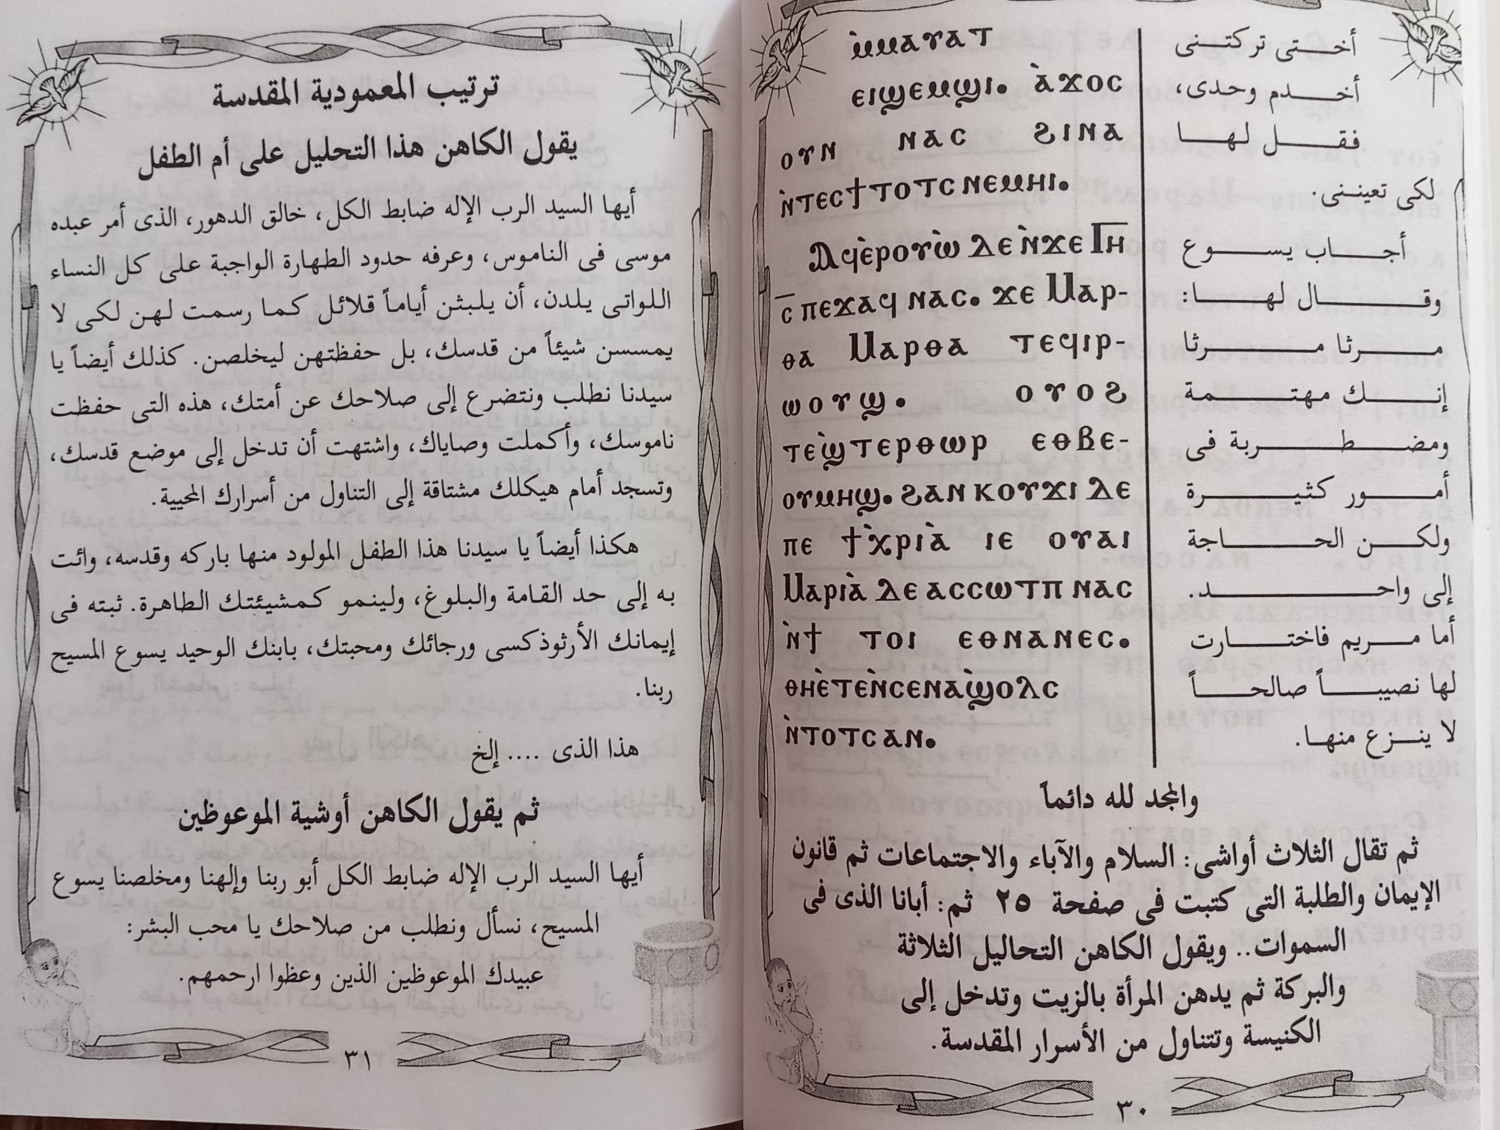 ⲙ̀ⲙⲁⲩⲁⲧ
ⲉⲓϣⲉⲙϣⲓ. ⲁ̀ϫⲟⲥ
ⲟⲩⲛ ⲛⲁⲥ ϩⲓⲛⲁ
ⲛ̀ⲧⲉⲥϯⲧⲟⲧⲥ ⲛⲉⲙⲏⲓ.
Ⲁϥⲉ̀ⲣⲟⲩⲱ̀ ⲇⲉ ⲛ̀ϫⲉ Ⲓⲏ̅
ⲥ̅ ⲡⲉϫⲁϥ ⲛⲁⲥ. ϫⲉ Ⲙⲁⲣ-
ⲑⲁ Ⲙⲁⲣⲑⲁ ⲧⲉϥⲓⲣ-
ⲱⲟⲩϣ. ⲟⲩⲟϩ
ⲧⲉϣ̀ⲧⲉⲣⲑⲱⲣ ⲉⲑⲃⲉ-
ⲟⲩⲙⲏϣ. ϩⲁⲛ ⲕⲟⲩϫⲓ ⲇⲉ
ⲡⲉ ϯⲭ̀ⲣⲓⲁ̀ ⲓⲉ ⲟⲩⲁⲓ
Ⲙⲁⲣⲓⲁ̀ ⲇⲉ ⲁⲥⲥⲱⲧⲡ ⲛⲁⲥ
ⲛ̀ϯ ⲧⲟⲓ ⲉⲑⲛⲁⲛⲉⲥ.
ⲑⲏⲉ̀ⲧⲉⲛ̀ⲥⲉⲛⲁⲱ̀ⲟⲗⲥ
ⲛ̀ⲧⲟⲧⲥ ⲁⲛ.
أختى تركتنى
أخدم وحدى،
فقل لها
لكى تعيننى.
أجاب يسوع
وقال لها:
مرثا مرثا
إنك مهتمة
ومضطربة فى
أمور كثيرة
ولكن الحاجة
إلى واحد.
أما مريم فاختارت
لها نصيباً صالحاً
لا ينزع منها.
والمجد لله دائماً
ثم تقال الثلاث أواشى: السلام والآباء والاجتماعات ثم قانون
الإيمان والطلبة التى كتبت فى صفحة ٢٥ ثم: أبانا الذى فى
السموات.. ويقول الكاهن التحاليل الثلاثة
والبركة ثم يدهن المرأة بالزيت وتدخل إلى
الكنيسة وتتناول من الأسرار المقدسة.
٣٠
ترتيب المعمودية المقدسة
يقول الكاهن هذا التحليل على أم الطفل
أيها السيد الرب الإله ضابط الكل، خالق الدهور، الذى أمر عبده
موسى فى الناموس، وعرفه حدود الطهارة الواجبة على كل النساء
اللواتى يلدن، أن يلبثن أياماً قلائل كما رسمت لهن لكى لا
يمسسن شيئاً من قدسك، بل حفظتهن ليخلصن. كذلك أيضاً يا
سيدنا نطلب ونتضرع إلى صلاحك عن أمتك، هذه التى حفظت
ناموسك، وأكملت وصاياك، واشتهت أن تدخل إلى موضع قدسك،
وتسجد أمام هيكلك مشتاقة إلى التناول من أسرارك المحيية.
هكذا أيضاً يا سيدنا هذا الطفل المولود منها باركه وقدسه، وائت
به إلى حد القامة والبلوغ، ولينمو كمشيئتك الطاهرة. ثبته فى
إيمانك الأرثوذكسى ورجائك ومحبتك، بابنك الوحيد يسوع المسيح
ربنا.
هذا الذى .... إلخ
ثم يقول الكاهن أوشية الموعوظين
أيها السيد الرب الإله ضابط الكل أبو ربنا وإلهنا ومخلصنا يسوع
المسيح، نسأل ونطلب من صلاحك يا محب البشر:
عبيدك الموعوظين الذين وعظوا ارحمهم.
٣١